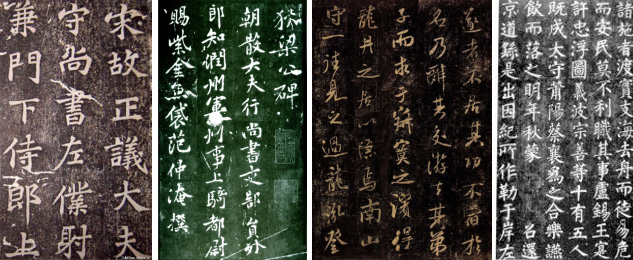 宋故正議大夫
守尚書左僕射
兼門下侍郎上
狄梁公碑
朝散大夫行尚書吏部員外
郎知潤州軍州事上騎都尉
賜紫金魚袋范仲淹撰
不居其功不苟於
名乃辯其文游其弟
子而求于寞之濱得
龍井之居以隱焉南山
守一往見之過龍泓登
者渡實支海去舟而徙易危
而安民莫不利職其事盧錫王寔
許忠浮圖義波宗善等十有五人
既成太守莆陽蔡襄為之合樂讌
飲而落之明年秋蒙 召還
京道繇是出因紀所作勒于岸左